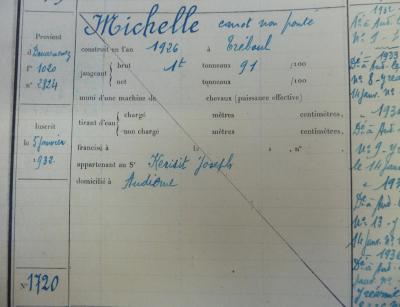 Michelle canot non ponté
Provient
d'Douarnenez
f° 1020
n° 2824
construit en l'an 1926 à Tréboul
jaugeant { brut 1t tonneaux 91 /100
net tonneaux /100
muni d'une machine de chevaux (puissance effective)
tirant d'eau { chargé mètres centimètres.
non chargé mètres centimètres.
Inscrit
le 5 janvier
1932
francisé à le n°
appartenant au Sr Kerisit Joseph
domicilié à Audierne
N° 1720
1932
N° 9 -
1933
N° 8 -
N° 9 -
le 14 janv.
N° 13 -
1936